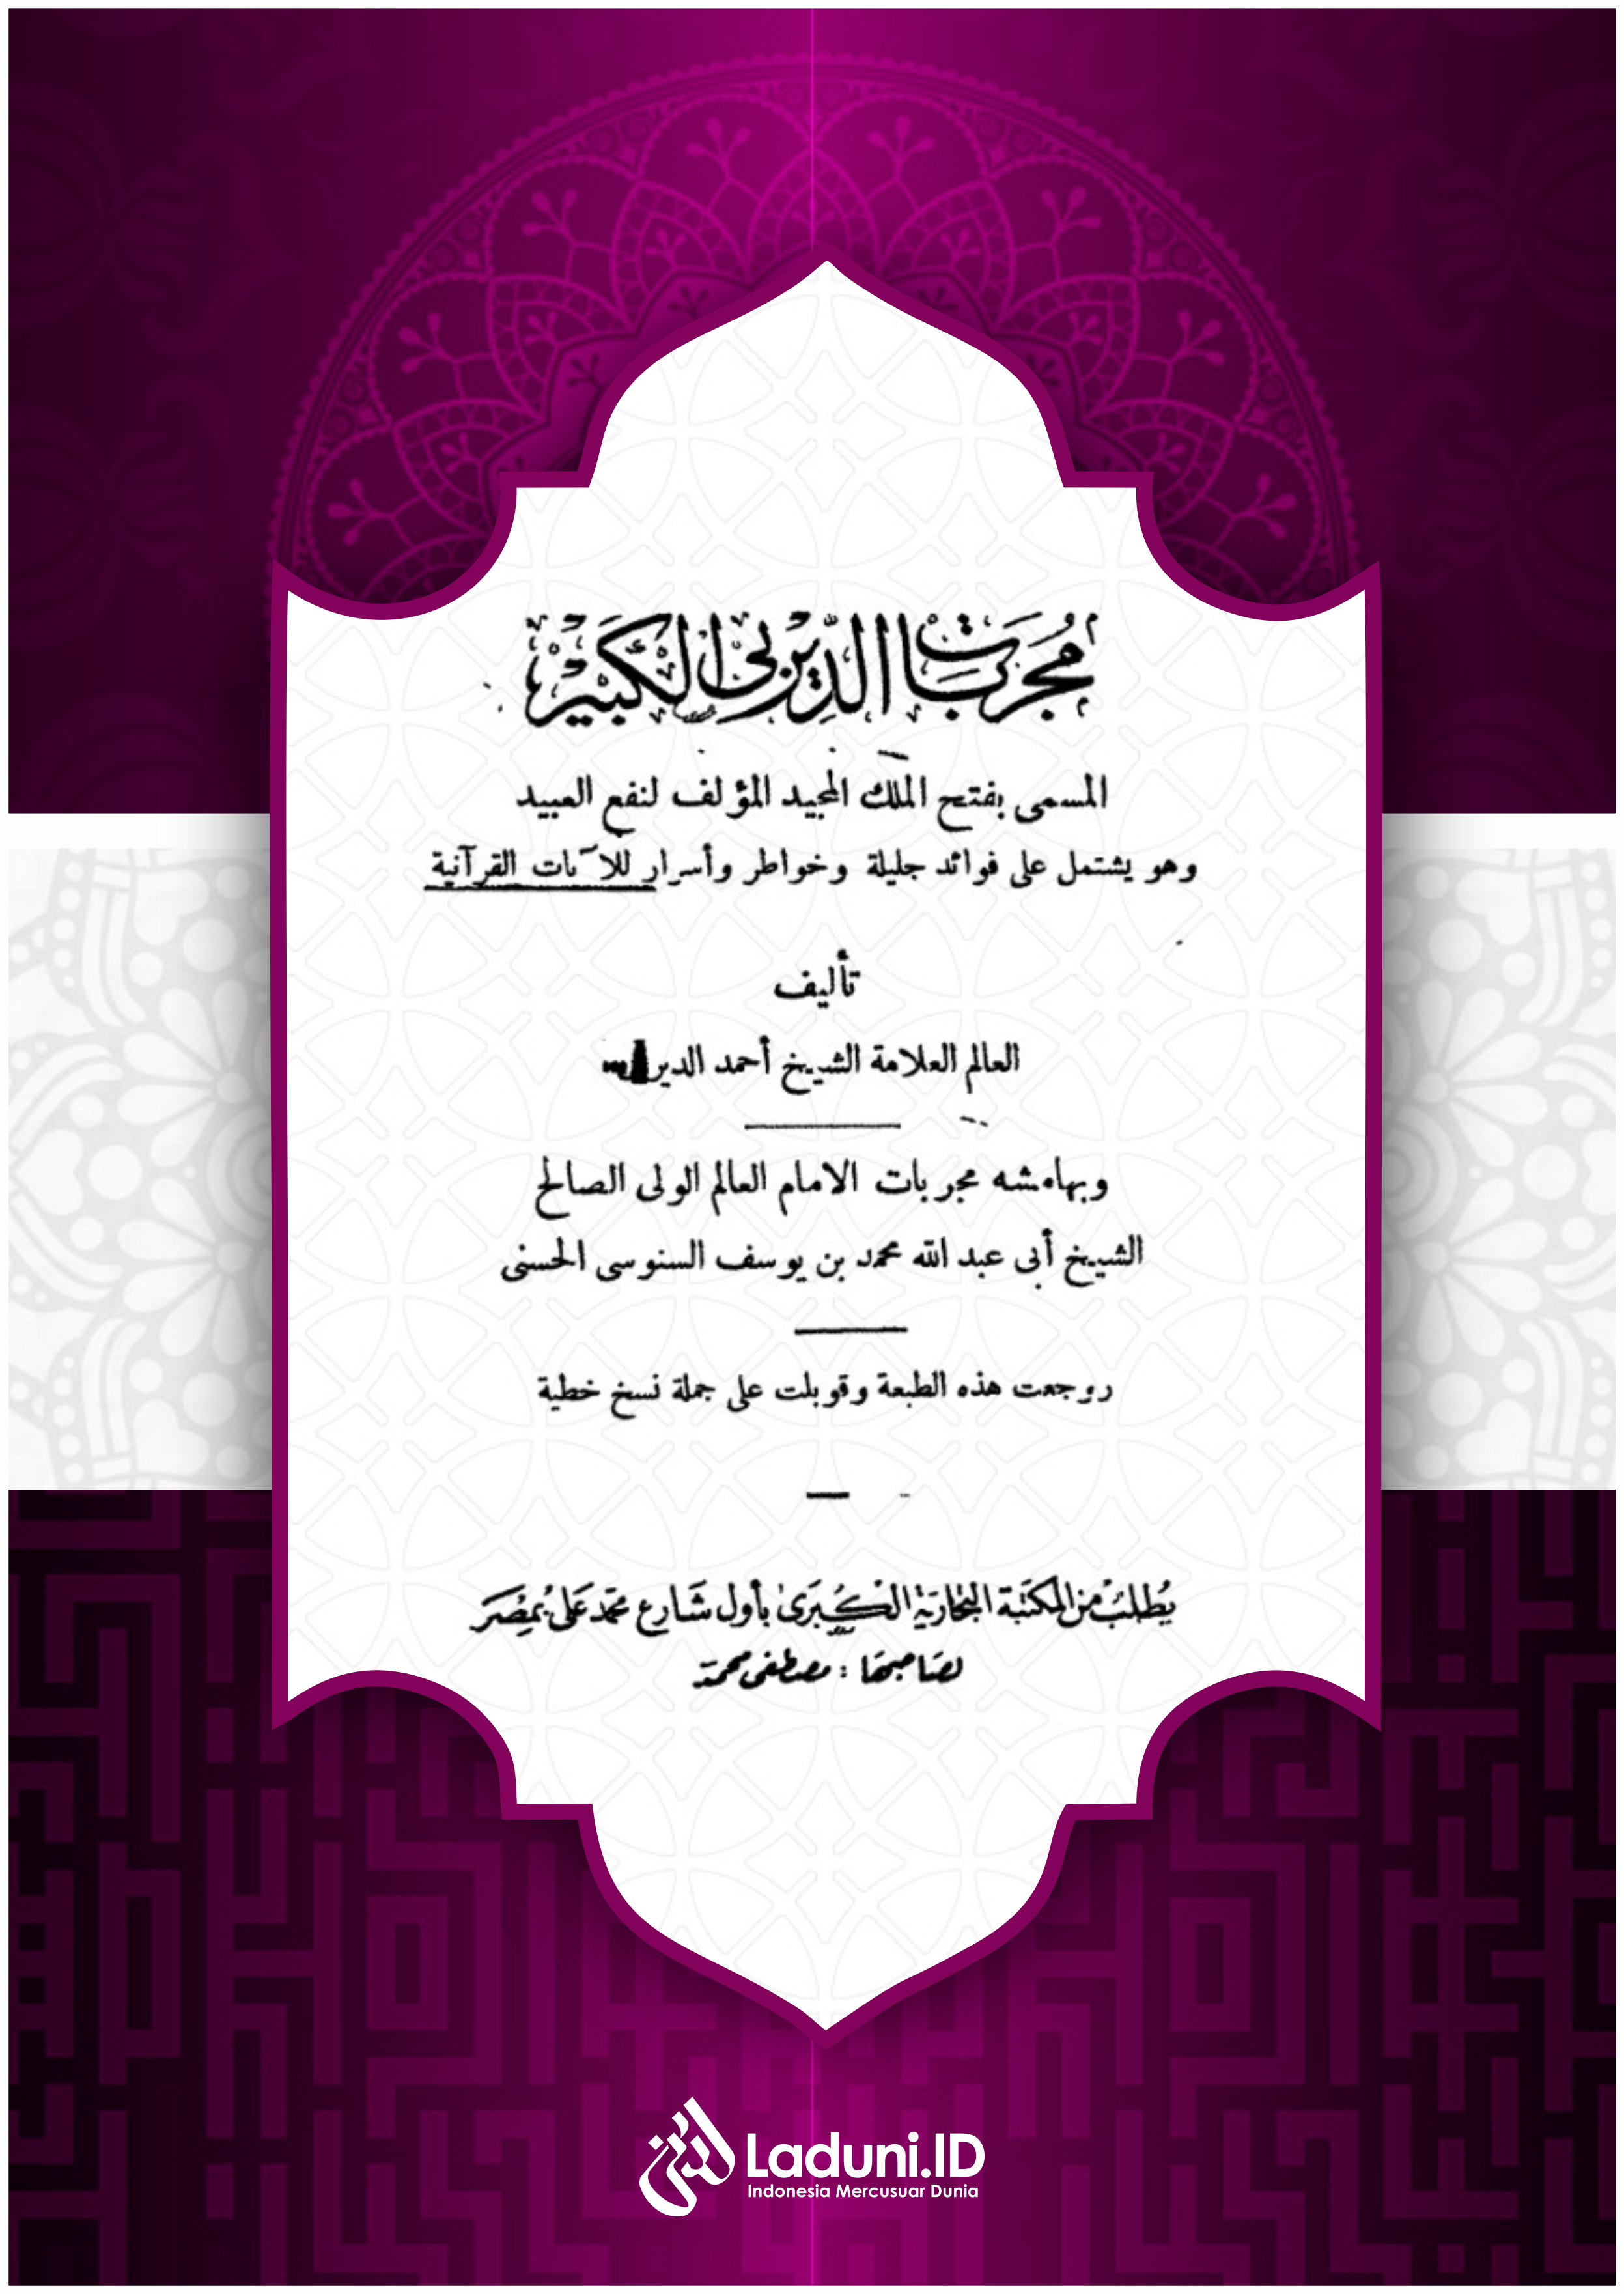 مُجَرَّبَات الدِّيْرَبِى الْكَبِيْر
المسمى بفتح الملك المجيد المؤلف لنفع العبيد
وهو يشتمل على فوائد جليلة وخواطر وأسرار للآيات القرآنية
تأليف
العالم العلامة الشيخ أحمد
وبهامشه مجربات الامام العالم الولى الصالح
الشيخ أبى عبد الله محمد بن يوسف السنوسى الحسنى
روجعت هذه الطبعة وقوبلت على جملة نسخ خطية
يُطلبُ من المكتبة التجارية الكُبرى بأول شَارع محمد عَلى بمصْر
لصَاحبهَا : مصطفى محمد
لدني
Laduni.ID
Indonesia Mercusuar Dunia